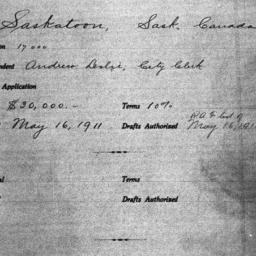 Saskatoon, Sask. Canada
on 17000
ndent Andrew Leslie, City Clerk
Application
$30,000.- Terms 10%
May 16, 1911 Drafts Authorized May 16, 191
al Terms
Drafts Authorized